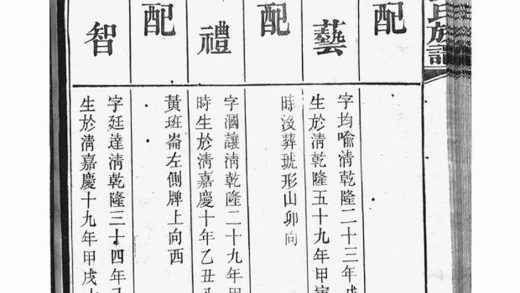 氏族譜
配
藝
字均喻清乾隆二十三年戊
生於清乾隆五十九年甲寅
配
時沒葬琥形山卯向
禮
字國讓清乾隆二十九年甲
時生於清嘉慶十年乙丑八
配
黃班崙左側牌上向西
智
字廷達清乾隆三十四年己
生於清嘉慶十九年甲戌